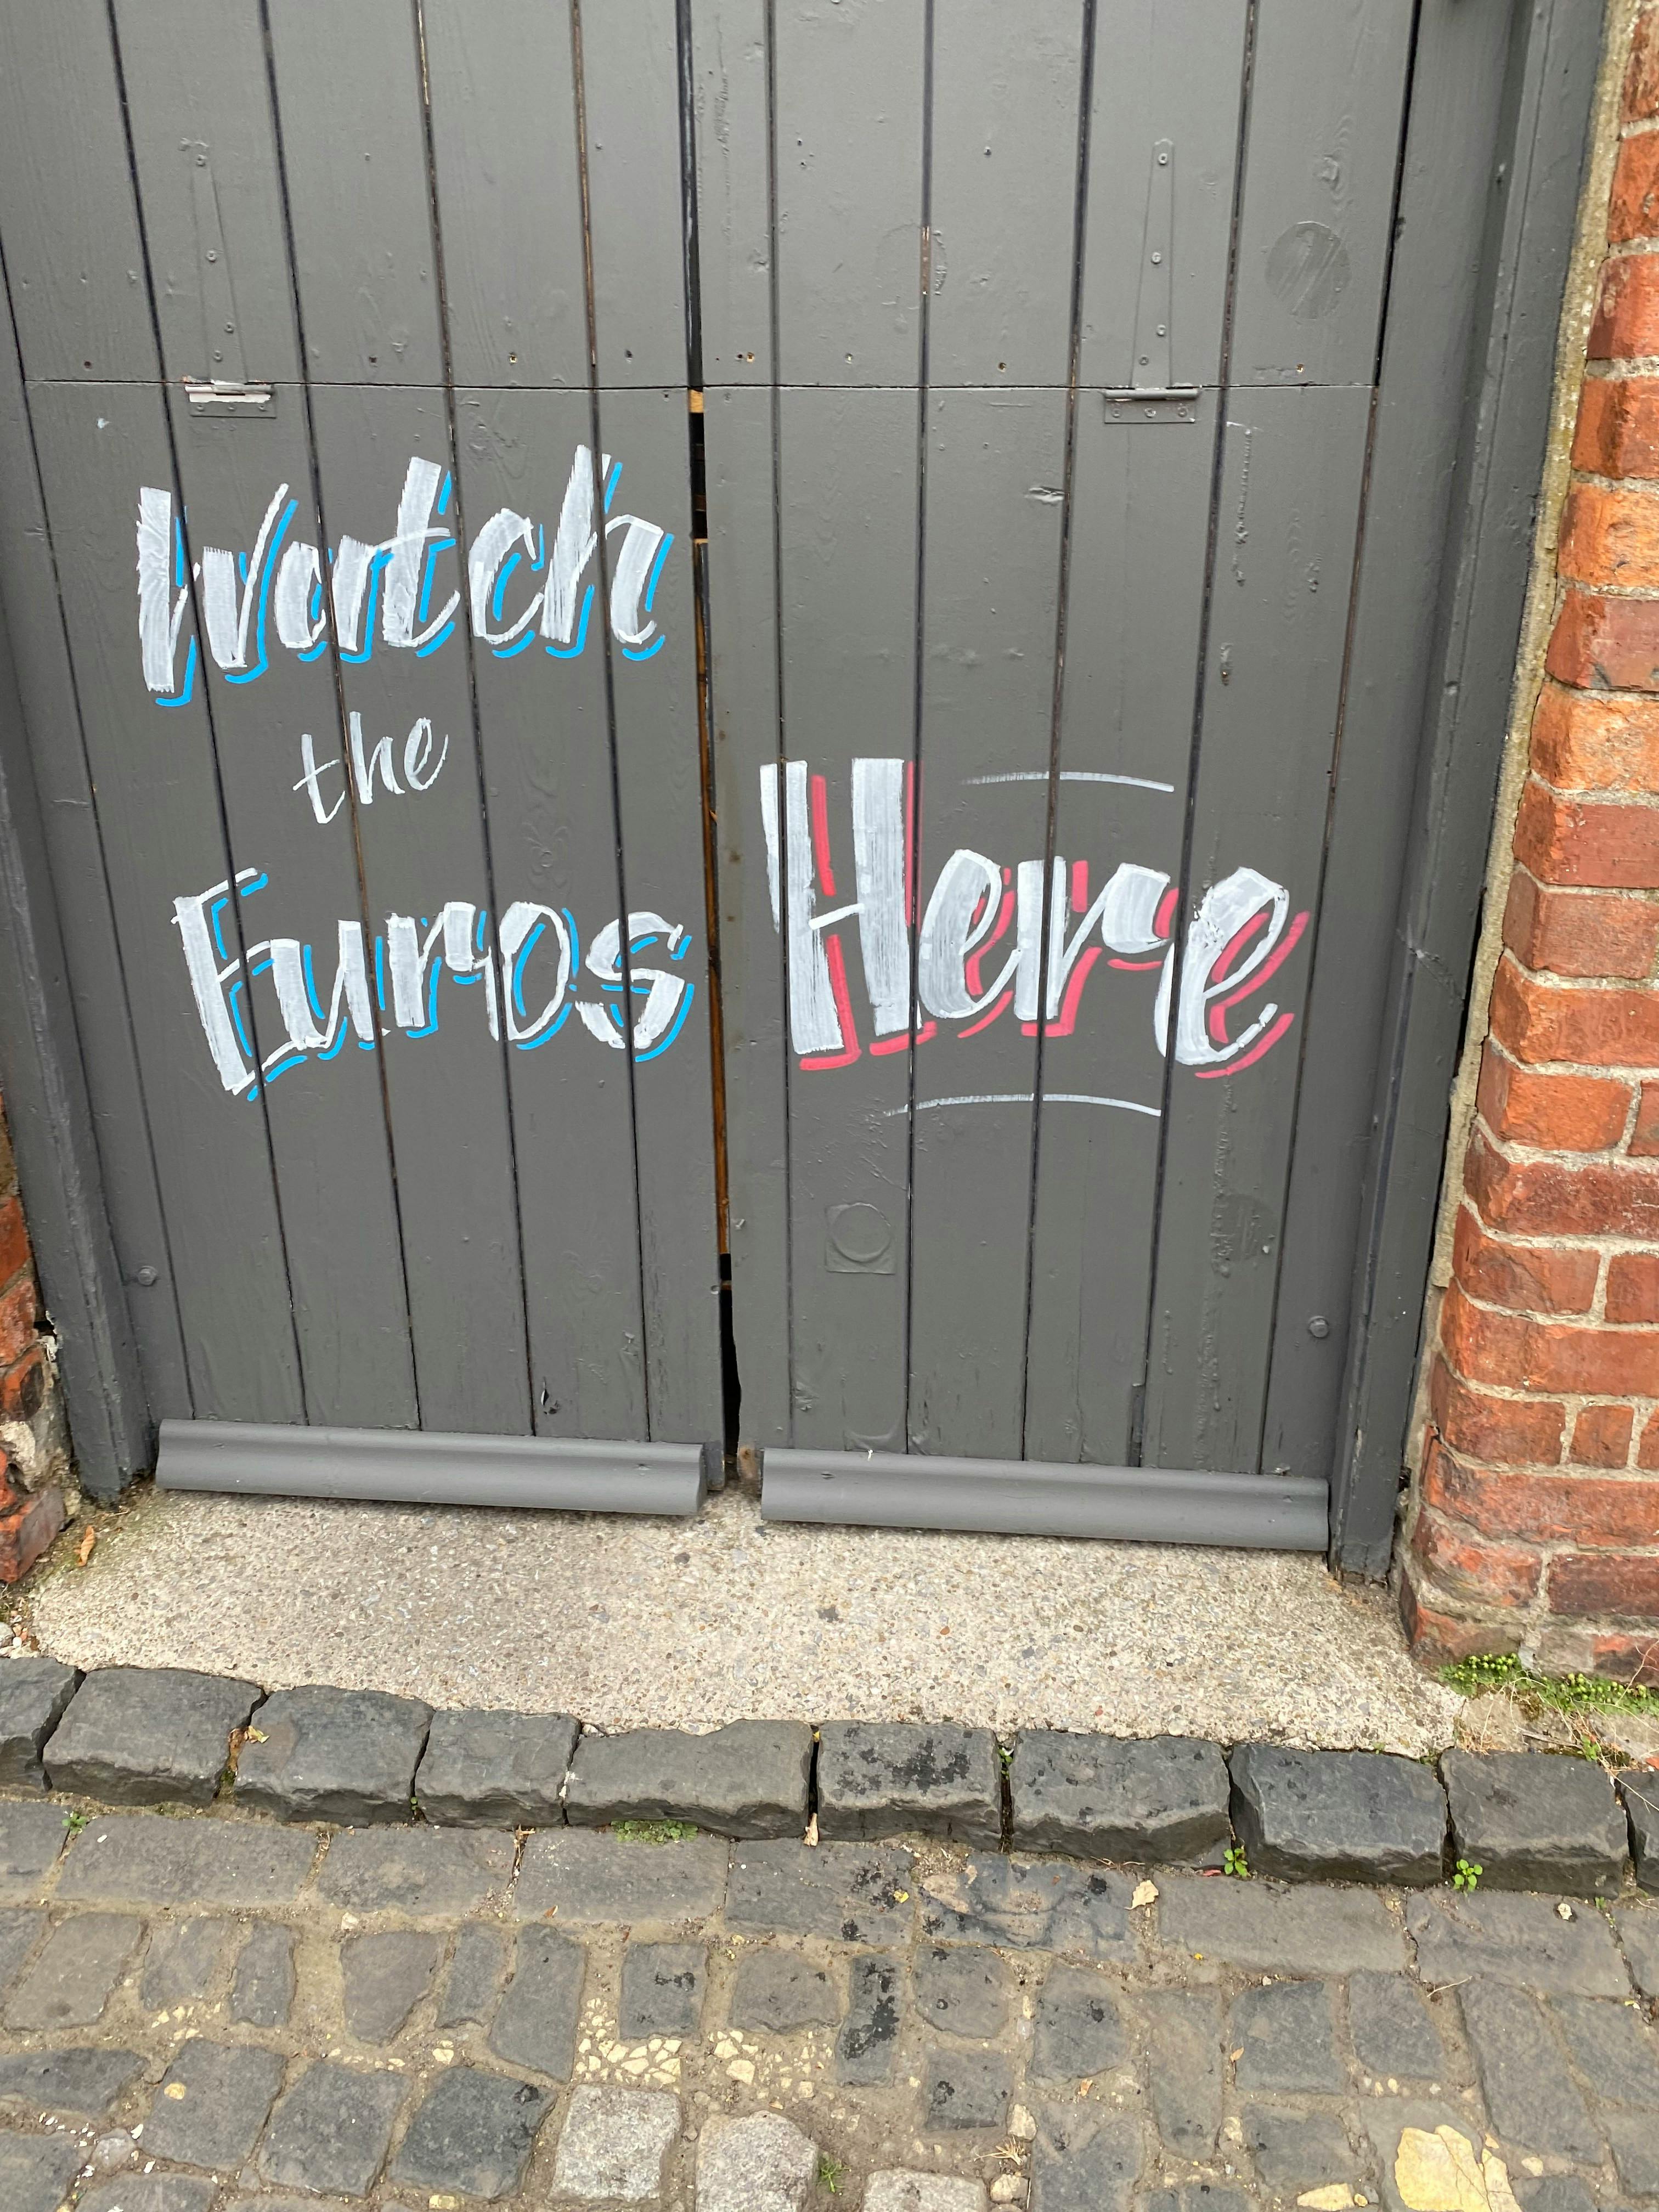 Watch
the
Euros
Here